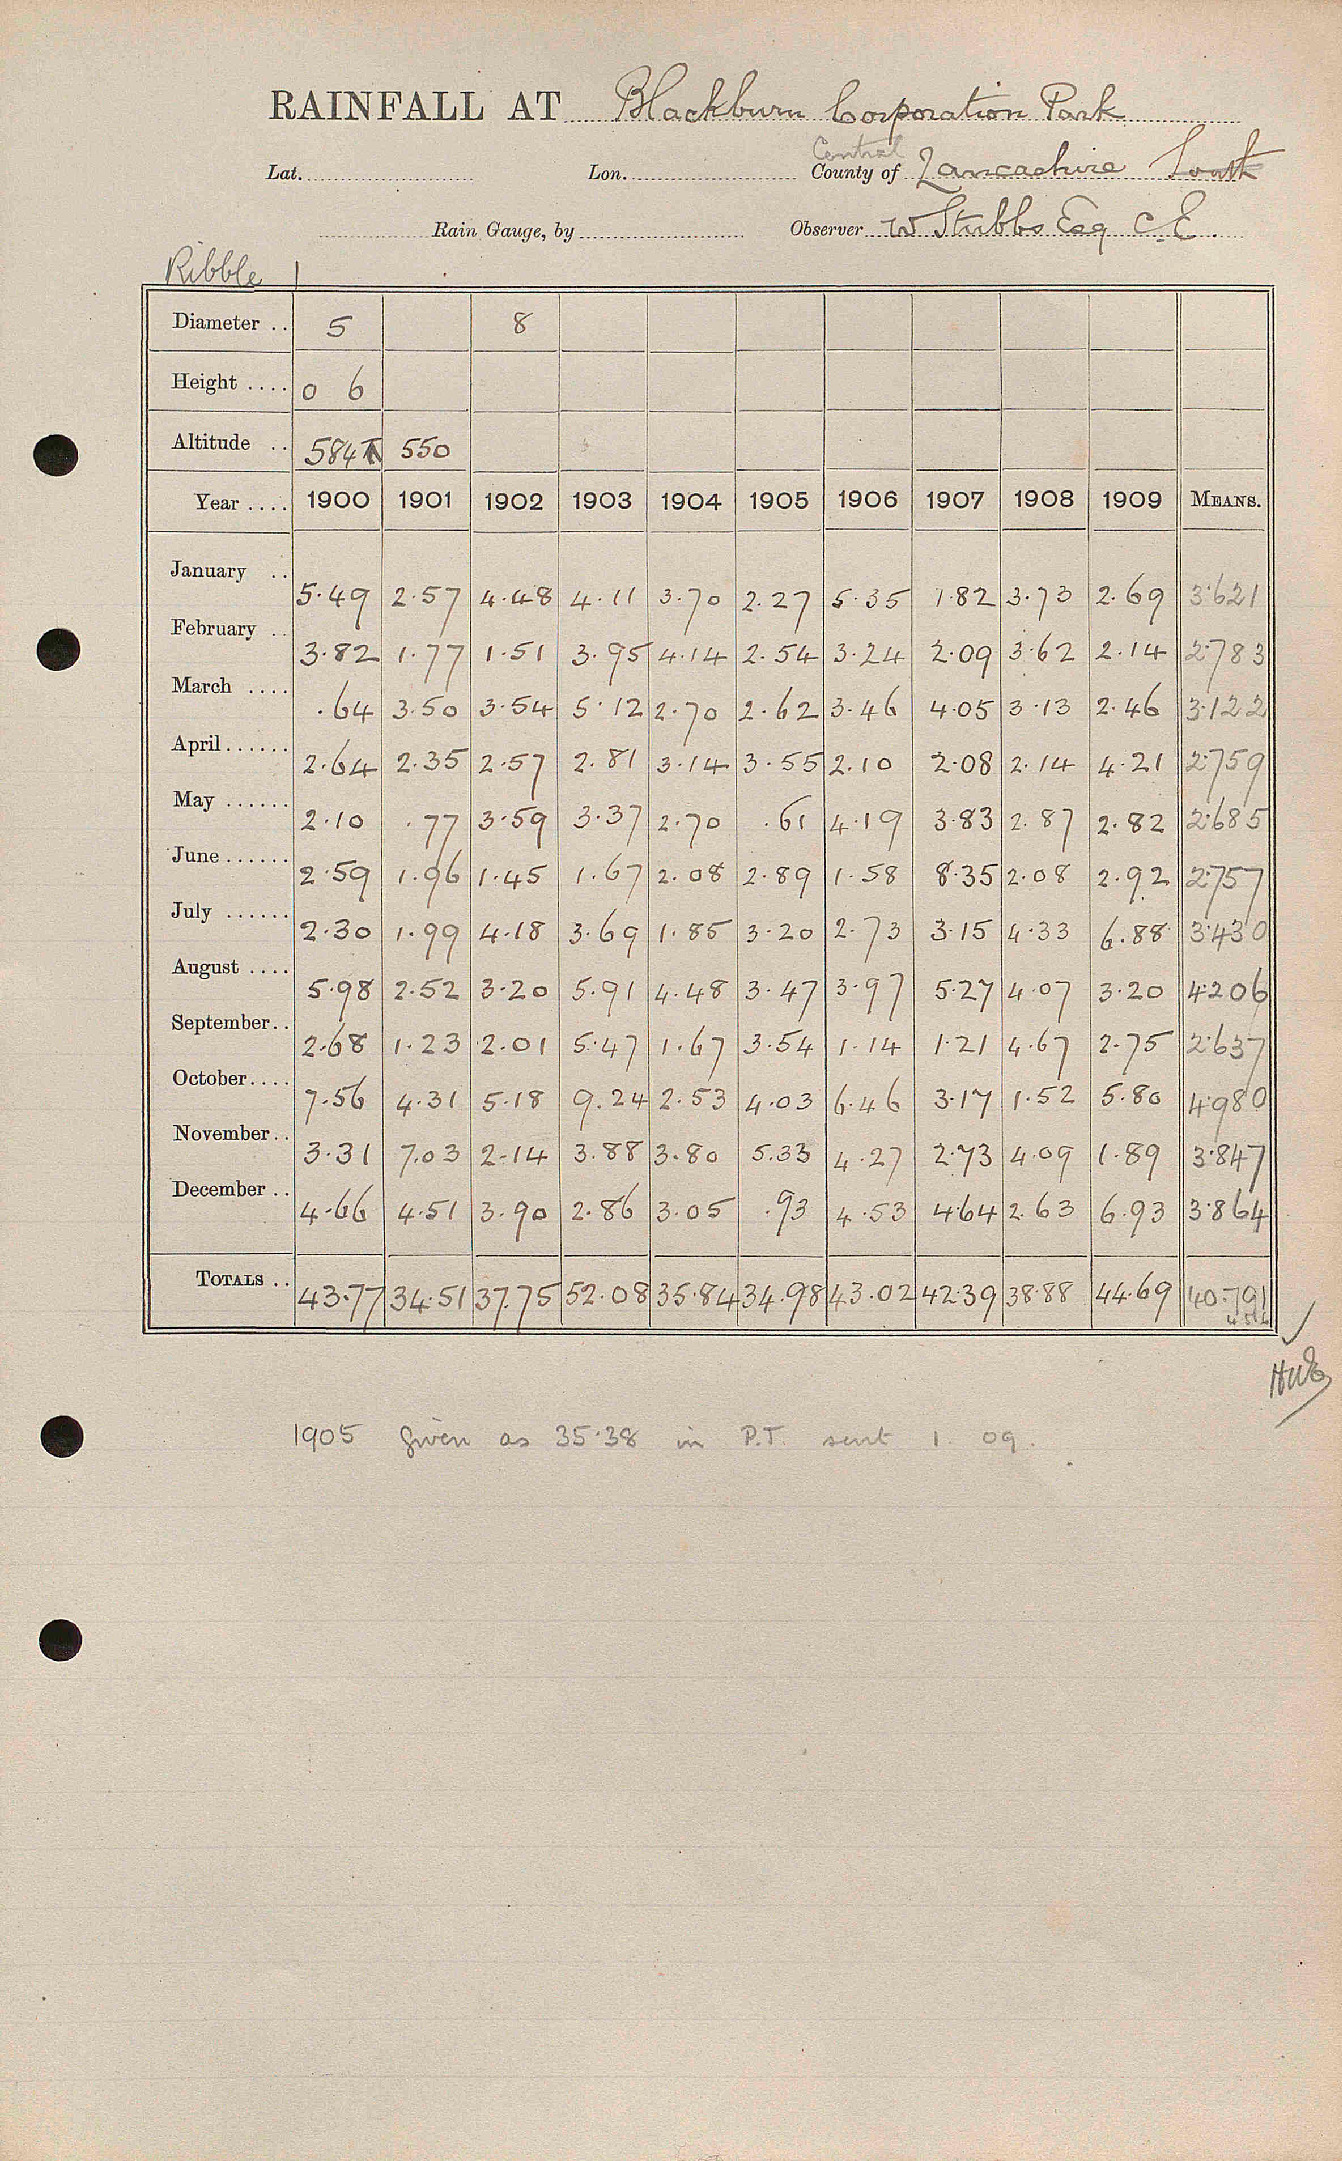 RAINFALL AT Blackburn Corporation Park
Central
Lat. Lon. County of Lancashire South
Rain Gauge, by Observer W Stubbs Esq C.E.
Ribble 1
Diameter .. 5 8
Height .... 0 6
Altitude .. 584 T 550
Year .... 1900 1901 1902 1903 1904 1905 1906 1907 1908 1909 MEANS.
January .. 5.49 2.57 4.48 4.11 3.70 2.27 5.35 1.82 3.73 2.69 3.621
February .. 3.82 1.77 1.51 3.95 4.14 2.54 3.24 2.09 3.62 2.14 2.783
March .... .64 3.50 3.54 5.12 2.70 2.62 3.46 4.05 3.13 2.46 3.122
April...... 2.64 2.35 2.57 2.81 3.14 3.55 2.10 2.08 2.14 4.21 2.759
May ...... 2.10 .77 3.59 3.37 2.70 .61 4.19 3.83 2.87 2.82 2.685
June...... 2.59 1.96 1.45 1.67 2.08 2.89 1.58 8.35 2.08 2.92 2.757
July ...... 2.30 1.99 4.18 3.69 1.85 3.20 2.73 3.15 4.33 6.88 3.430
August .... 5.98 2.52 3.20 5.91 4.48 3.47 3.97 5.27 4.07 3.20 4.206
September.. 2.68 1.23 2.01 5.47 1.67 3.54 1.14 1.21 4.67 2.75 2.637
October.... 7.56 4.31 5.18 9.24 2.53 4.03 6.46 3.17 1.52 5.80 4.980
November.. 3.31 7.03 2.14 3.88 3.80 5.33 4.27 2.73 4.09 1.89 3.847
December .. 4.66 4.51 3.90 2.86 3.05 .93 4.53 4.64 2.63 6.93 3.864
TOTALS .. 43.77 34.51 37.75 52.08 35.84 34.98 43.02 42.39 38.88 44.69 40.791
1905 given as 35.38 in P.T. sent 1. 09.